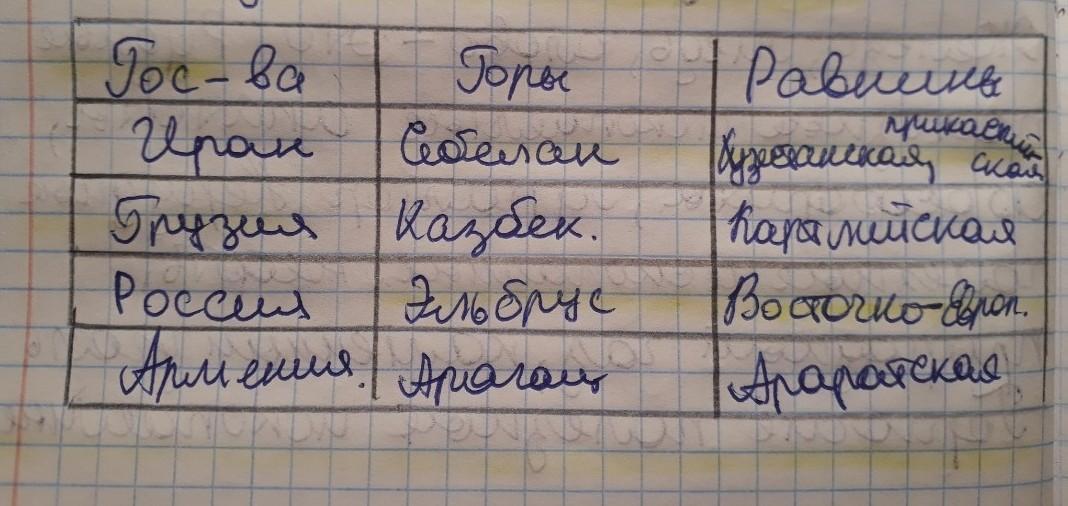 Гос-ва Горы Равнины
Иран Себелан Хузестанская, прикаспий-
ская
Грузия Казбек. Картлийская
Россия Эльбрус Восточно-Европ.
Армения. Арагац Араратская